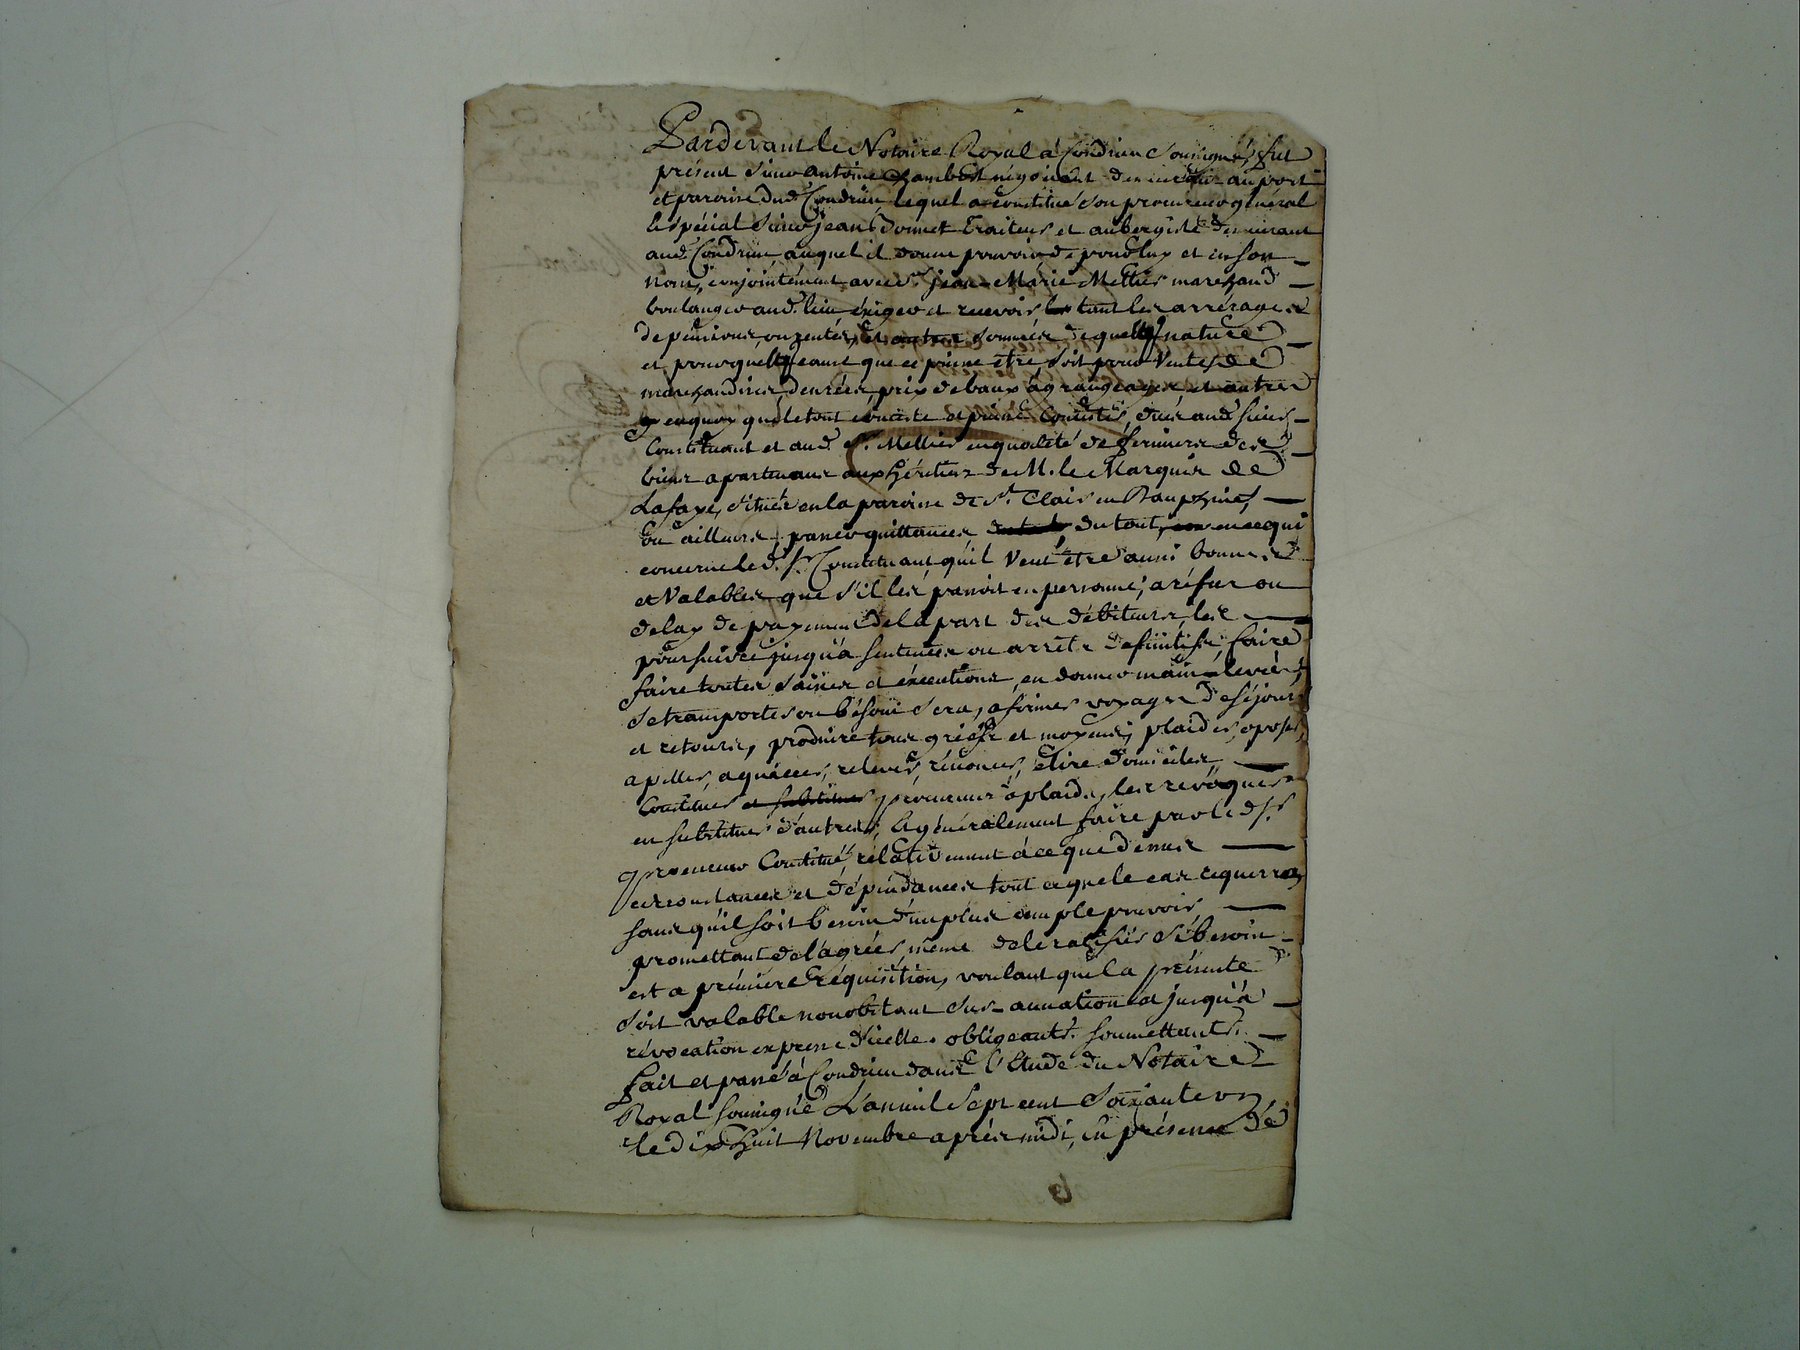 Pardevant le Notaire Royal à Condrieu Soussigné, fut
présent Sieur Antoine Chambost négotiant demeurant au port
et paroisse dud. Condrieu, lequel a constitué son procureur général
& spécial Sieur jean Donnet traiteur et aubergiste demeurant
aud. Condrieu, auquel il donne pouvoir de pour luy et en son
nom, conjointement avec Sr. jean-Marie Mellier marchand
boulanger aud. lieu, éxiger et recevoir tant les arrérages
de pensions, ou rentes, et autres sommes de quelq. nature
et pour quelq. cause que ce puisse etre soit pour Ventes de
marchandises, denrées, prix de baux à grangeages, et autres
en quoy que le tout consiste et puisse consister, dues aud. Sieur
Constituant et aud. Sr. Mellier en qualité de fermiers des
biens apartenans aux héritiers de M. le Marquis de
Lafaye, situés en la paroisse de St. Clair en Dauphiné,
ou ailleurs, passer quittances, du tout, en ce qui
concerne led. Sr. Constituant, qu'il veut etre aussi bonnes
et Valables que s'il les passoit en personne; a réfus ou
delay de payement de la part des débiteurs, les
poursuivre jusqu'à sentences ou arrêts définitifs, faire
faire toutes saisies et éxécutions, en donner main-levée,
se transporter ou bésoin sera, afirmer voyages, séjours
et retours, produire tous griefs et moyens, plaider, oposer,
apeller, aquiecer, relever, rénoncer, élire domiciles,
Constituer et substituer procureurs à plaids, les revoquer
en substituer d'autres, & généralement faire par led. Sr.
procureur Constitué rélativement à ce que dessus
circonstances et dépendances tout ce que le cas requerra,
sans qu'il soit besoin d'un plus ample pouvoir,
promettant de l'agréer, même de le ratifier si besoin
est a prémière réquisition, voulant que la présente
soit valable nonobstant sur-annation et jusqu'à
révocation expresse d'icelle. obligeant. soumettant.
fait et passé à Condrieu dans l'Etude du Notaire
Royal soussigné L'an mil sept cent soixante un,
le dix huit Novembre après midi, en présence de